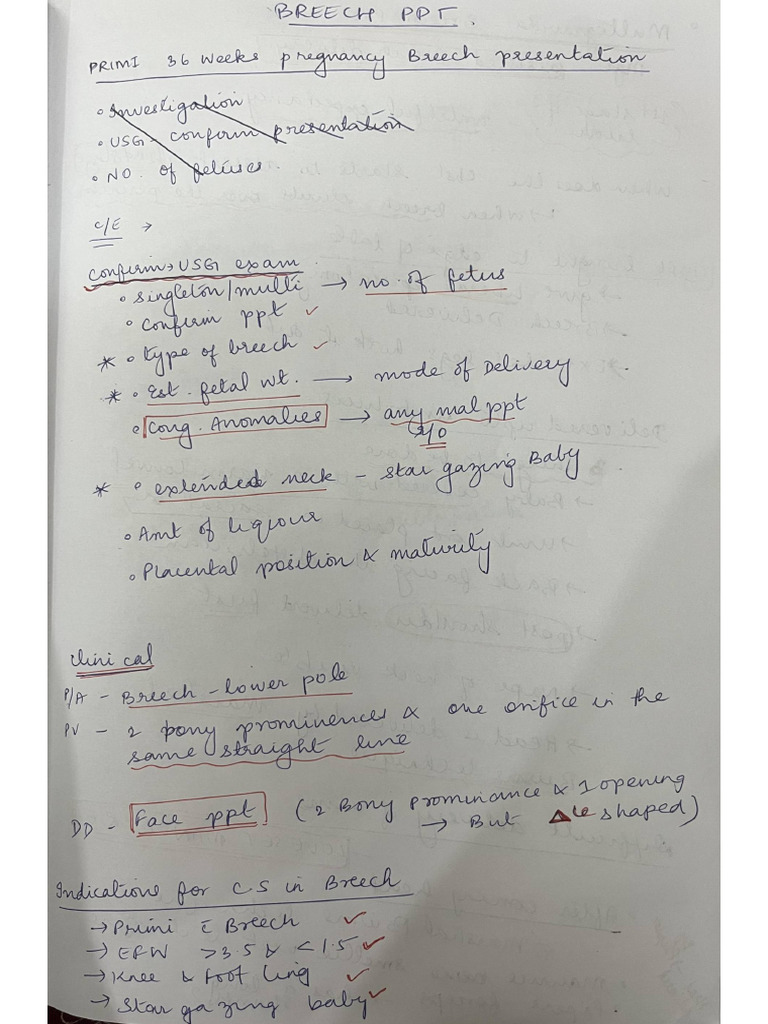 BREECH PPT.
PRIMI 36 weeks pregnancy Breech presentation
• Investigation
• USG - confirm presentation
• NO. of fetuses.
C/E →
Confirm → USG exam
• singleton/multi → no. of fetus
• confirm ppt ✓
* • type of breech ✓
* • Est. fetal wt. → mode of Delivery
• Cong. Anomalies → any mal ppt
r/o
* • extended neck - star gazing Baby
• Amt of liquour
• Placental position & maturity
Clinical
P/A - Breech - lower pole
PV - 2 bony prominences & one orifice in the
same straight line
DD - Face ppt (2 Bony Prominance & 1 opening
→ But Δle shaped)
Indications for C.S in Breech
→ Primi c̄ Breech ✓
→ EFW >3.5 & <1.5 ✓
→ Knee & foot ling ✓
→ Star gazing baby ✓